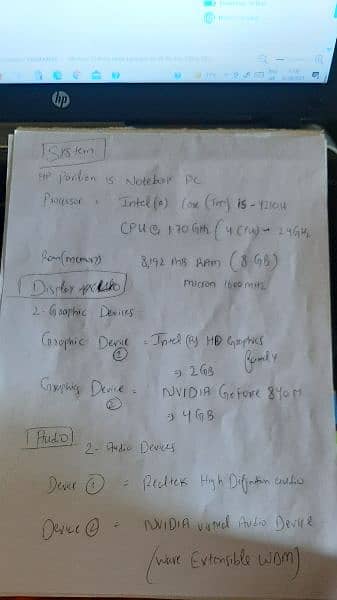 hp
System
HP Pavilion 15 Notebook PC
Processor = Intel(R) Core (Tm) i5 - 4210U
CPU @ 1.70 GHz (4 CPU) ~ 2.4 GHz
Ram(memory) 8,192 MB RAM (8 GB)
micron 1600 MHz
Display
2 - Graphic Devices
Graphic Device ① = Intel (R) HD Graphics
family
→ 2GB
Graphics Device ② = NVIDIA GeForce 840M
→ 4GB
Audio
2 - Audio Devices
Device ① = Realtek High Difinition audio
Device ② = NVIDIA virtual Audio Device
(Wave Extensible WDM)